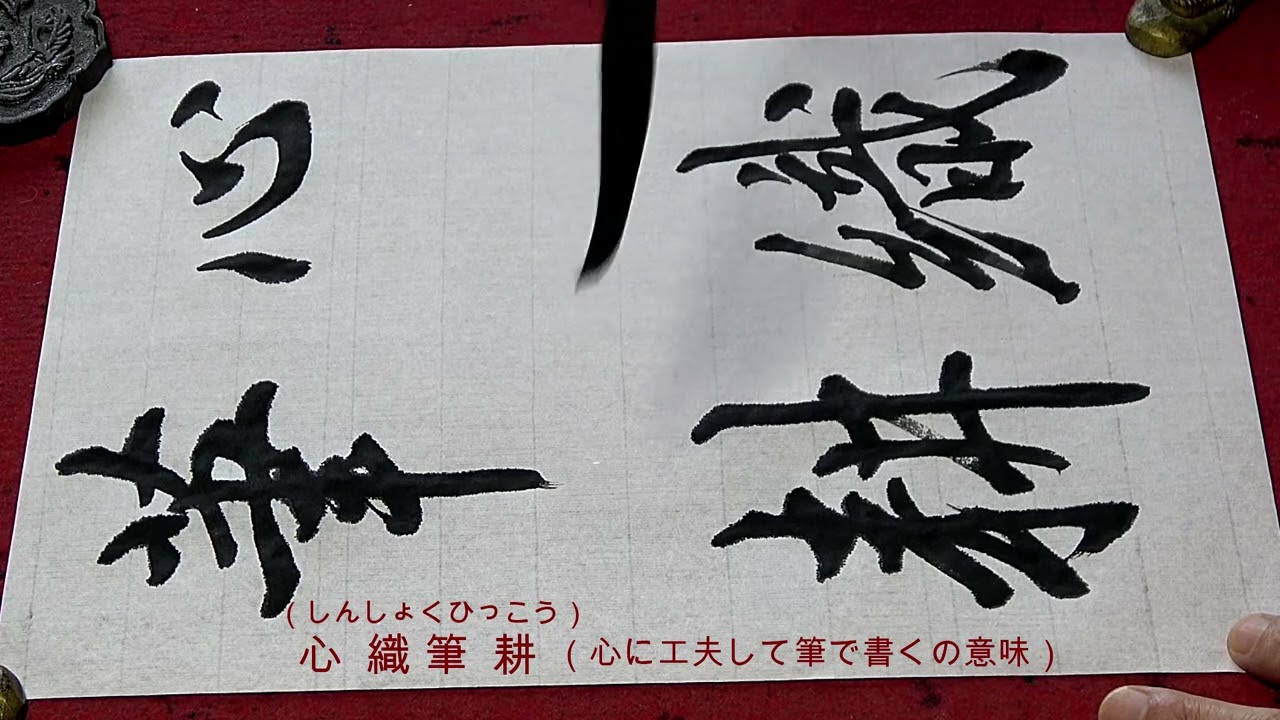 心織
筆耕
(しんしょくひっこう)
心 織 筆 耕 (心に工夫して筆で書くの意味)